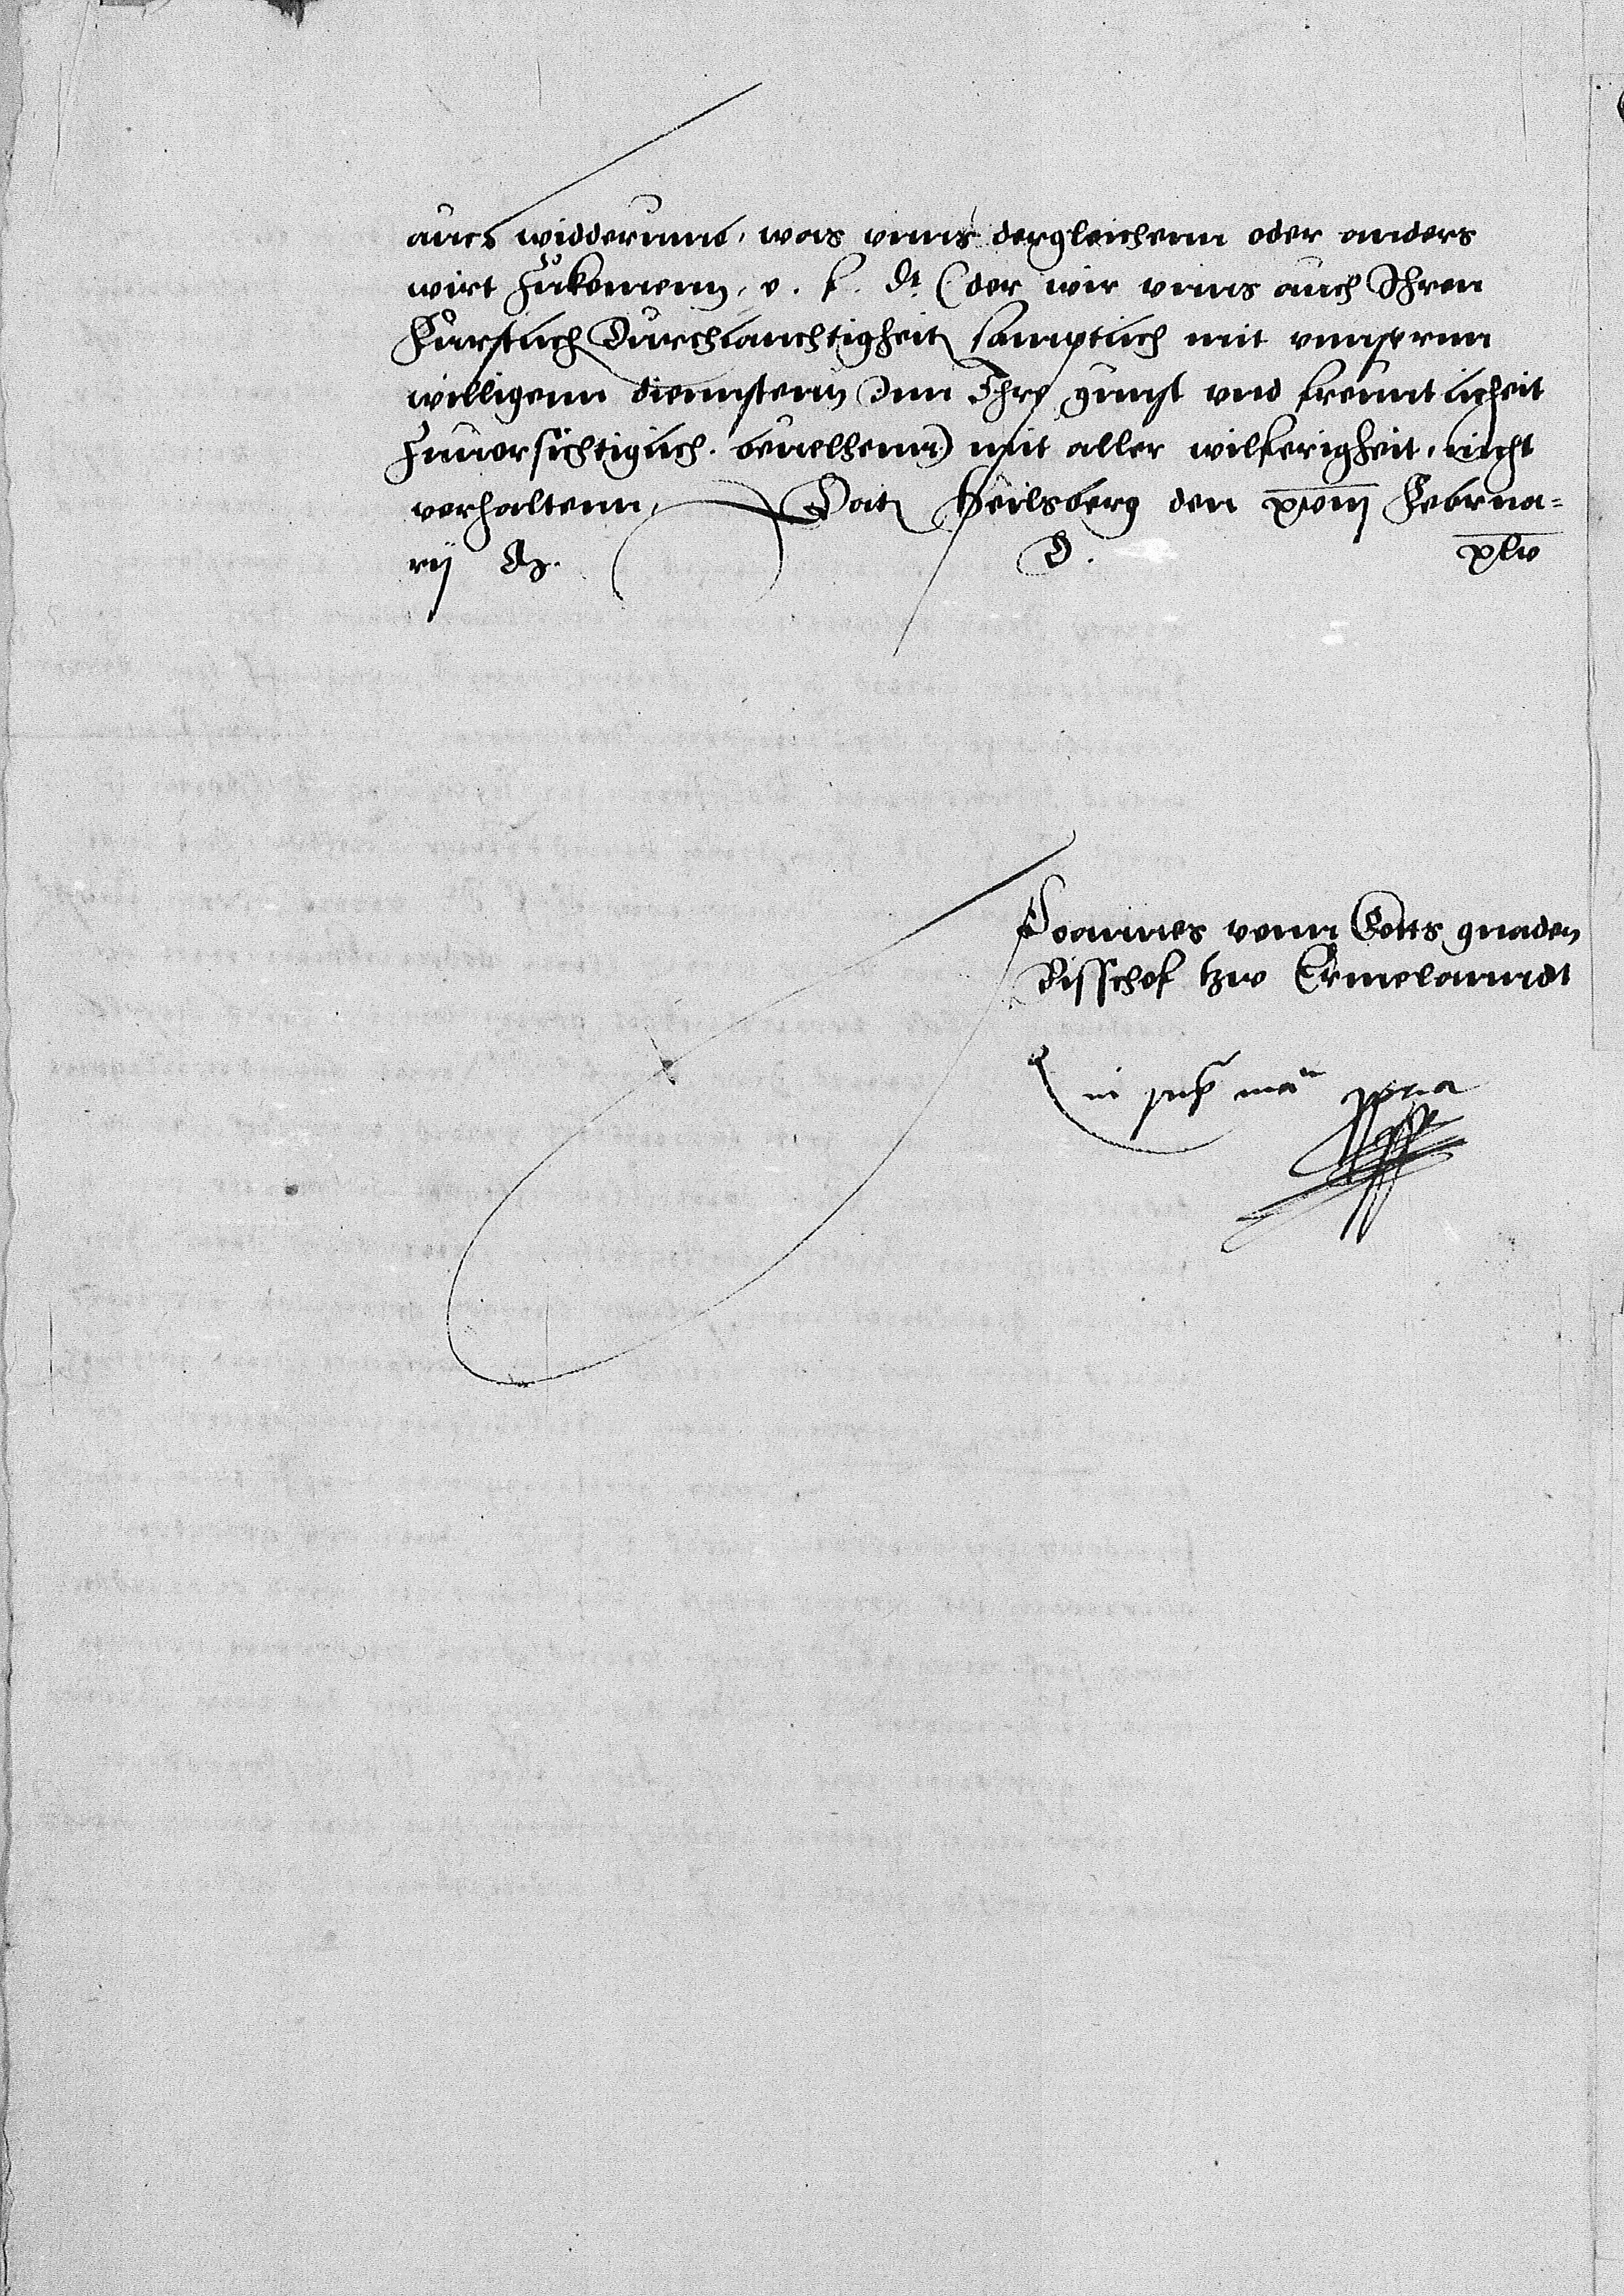 auch widderumb, was vnns dergleichenn oder anders
wirt zukomenn, e. f. dt (der wir vnns auch Ihren
Furstlich Durchlauchtigheit samptlich mit vnnsernn
willigenn diennstenn Inn Ihre gunst vnd freuntlicheit
zuuorsichtiglich. beuelhenn) mit aller wilferigheit, nicht
verhaltenn, Dat Heilsberg den xviij Februa=
rij D. xlv
Joannes vonn Gotts gnaden
Bisschof tzw Ermelanndt
in ma